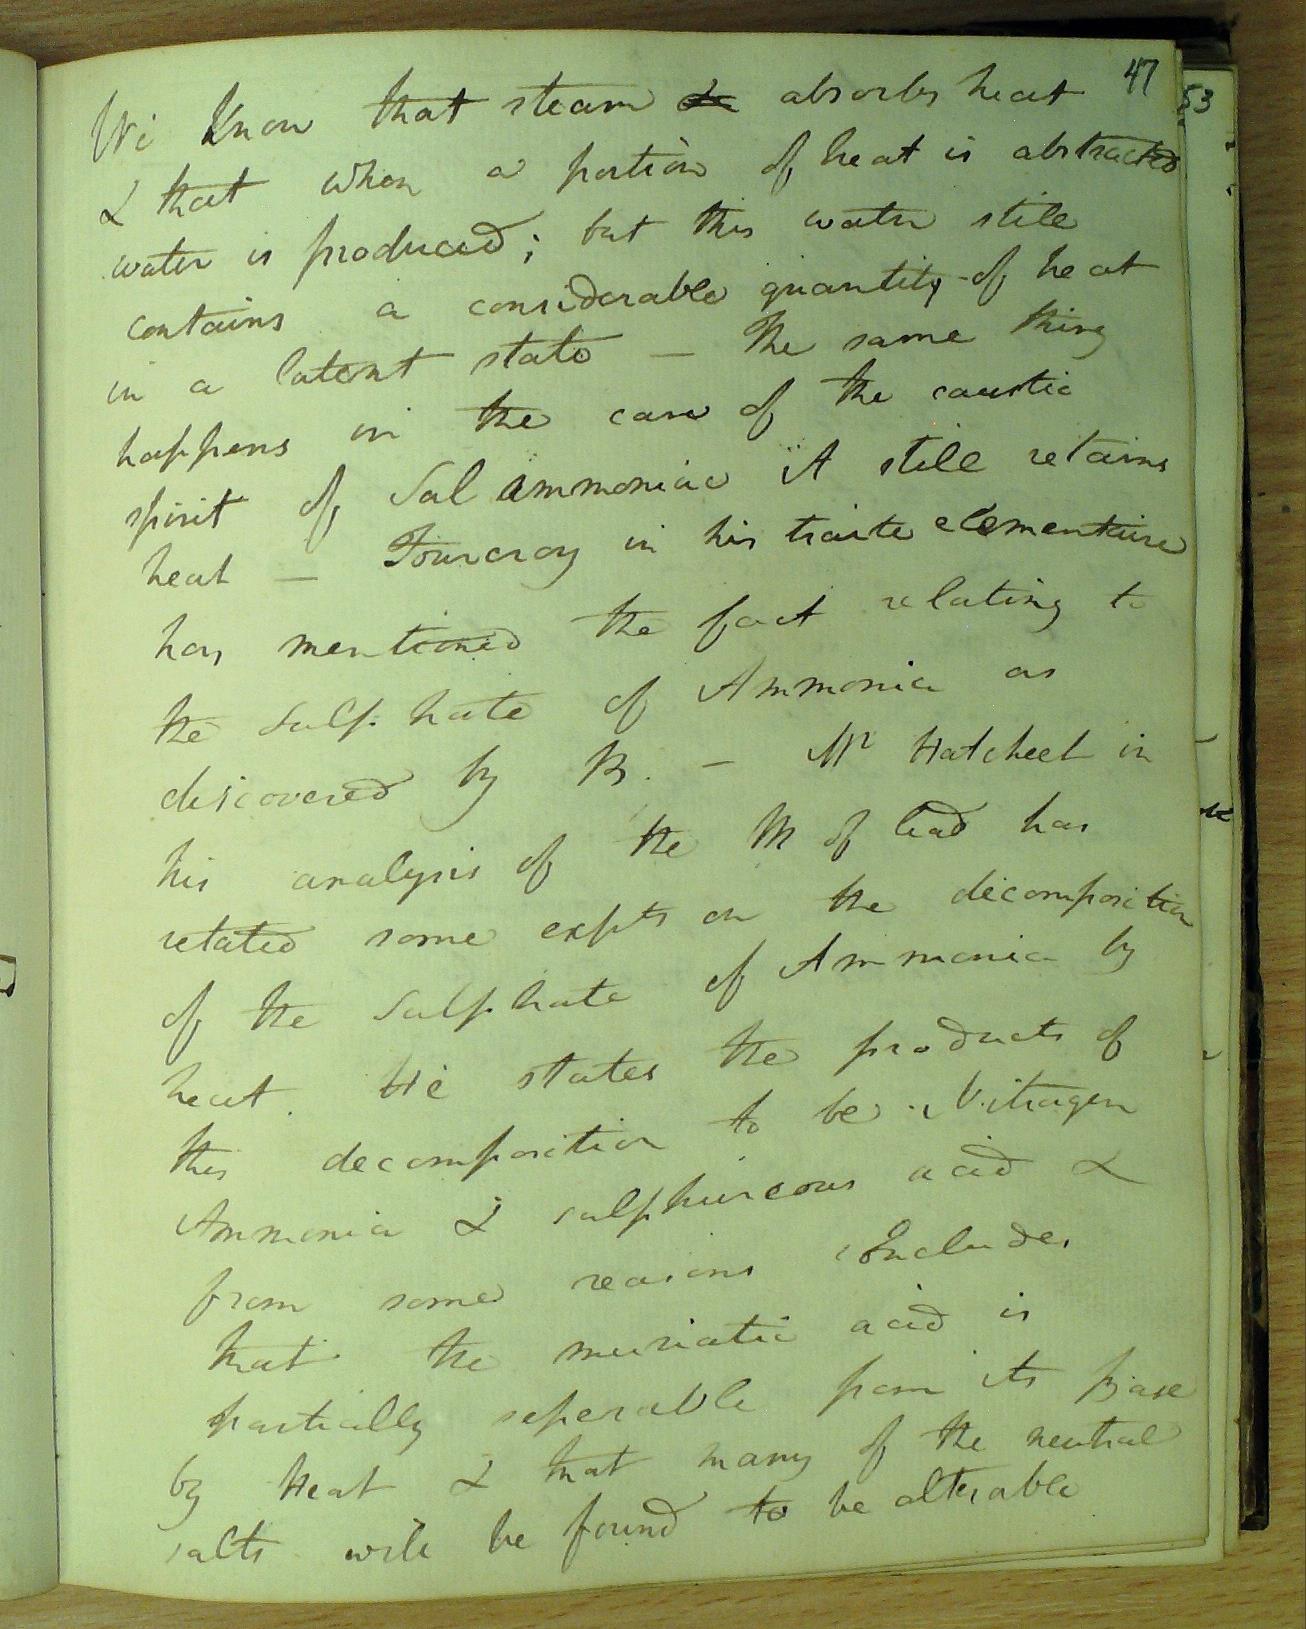 47
53
We Know that steam absorbs heat
& that when a portion of heat is abstracted
water is produced; but this water still
contains a considerable quantity of heat
in a latent state — The same thing
happens in the case of the caustic
spirit of Sal ammoniac it still retains
heat — Fourcroy in his traite elementaire
has mentioned the fact relating to
the Sulphate of Ammonia as
discovered by B. — Mr Hatchett in
his analysis of the M of lead has
related some expts on the decomposition
of the Sulphate of Ammonia by
heat. He states the products of
this decomposition to be Nitrogen
Ammonia & sulphureous acid &
from some reasons concludes
that the muriatic acid is
partially seperable from its Base
by Heat & that many of the neutral
salts will be found to be alterable